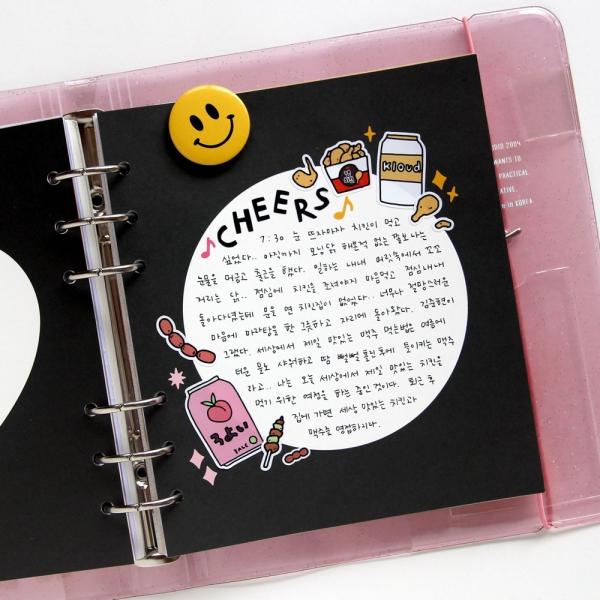 CHEERS
Kloud
7:30 눈 뜨자마자 치킨이 먹고
싶었다.. 아직까지 모닝닭 해본적 없는 쫄보 나는
눈물을 머금고 출근을 했다. 일하는 내내 머릿속에서 꼬꼬
거리는 닭.. 점심에 치킨을 조년야지 마음먹고 점심내내
돌아다녔는데 문을 연 치킨집이 없었다.. 너무나 절망스러운
마음에 마라탕을 한 그릇하고 자리에 돌아왔다. 김종현이
그랬다. 세상에서 제일 맛있는 맥주 먹는법은 여름에
더운 물로 샤워하고 땀 뻘뻘 흘린 후에 들이키는 맥주
라고.. 나는 오늘 세상에서 제일 맛있는 치킨을
먹기 위한 여정을 하는 중인 것이다. 퇴근 후
집에 가면 세상 맛있는 치킨과
맥주를 영접하리라.
うよい
2004
WANTS TO
PRACTICAL
in KOREA